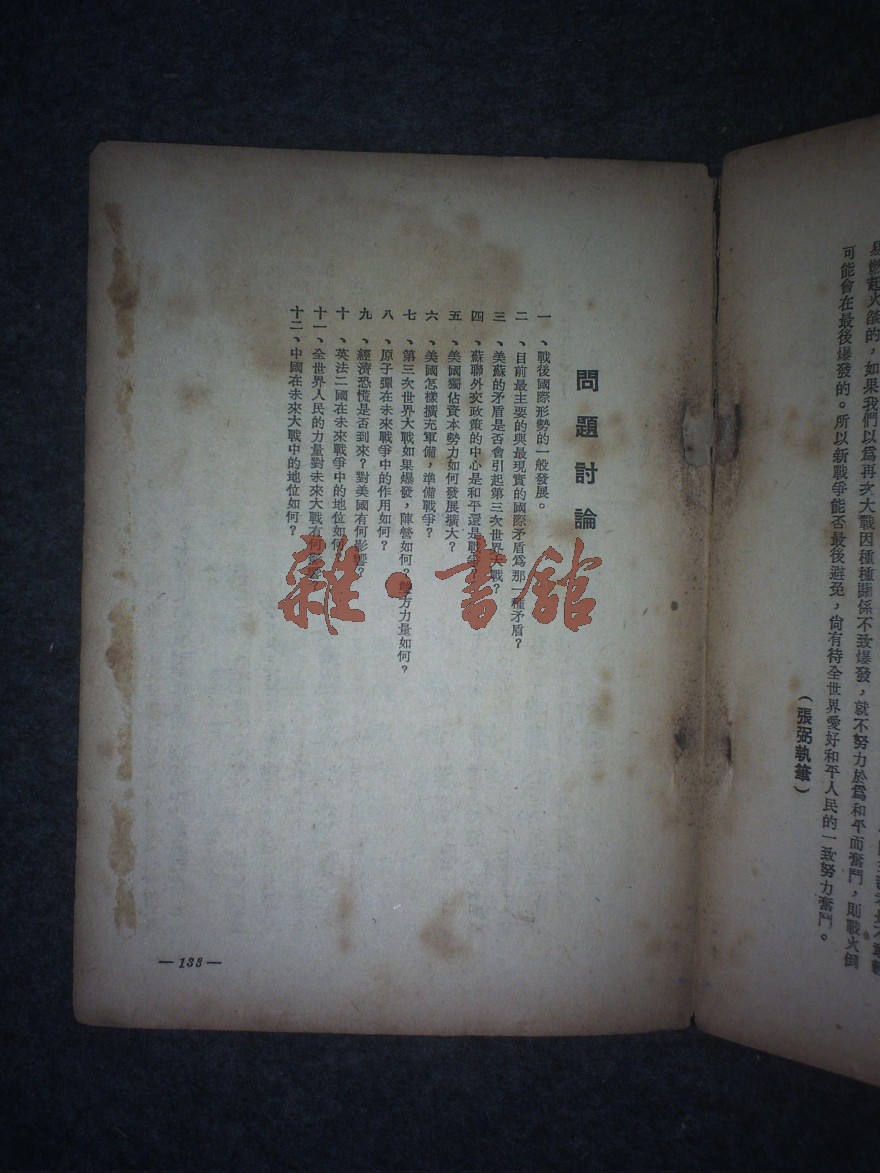 易燃起火燄的，如果我們以爲再次大戰因種種關係不致爆發，就不努力於爲和平而奮鬥，則戰火倒
可能會在最後爆發的。所以新戰爭能否最後避免，尙有待全世界愛好和平人民的一致努力奮鬥。
（張弼執筆）
問題討論
一、戰後國際形勢的一般發展。
二、目前最主要的與最現實的國際矛盾爲那一種矛盾？
三、美蘇的矛盾是否會引起第三次世界大戰？
四、蘇聯外交政策的中心是和平還是戰爭？
五、美國獨佔資本勢力如何發展擴大？
六、美國怎樣擴充軍備，準備戰爭？
七、第三次世界大戰如果爆發，陣營如何？雙方力量如何？
八、原子彈在未來戰爭中的作用如何？
九、經濟恐慌是否到來？對美國有何影響？
十、英法二國在未來戰爭中的地位如何？
十一、全世界人民的力量對未來大戰有何影響？
十二、中國在未來大戰中的地位如何？
—133—
雜·書館